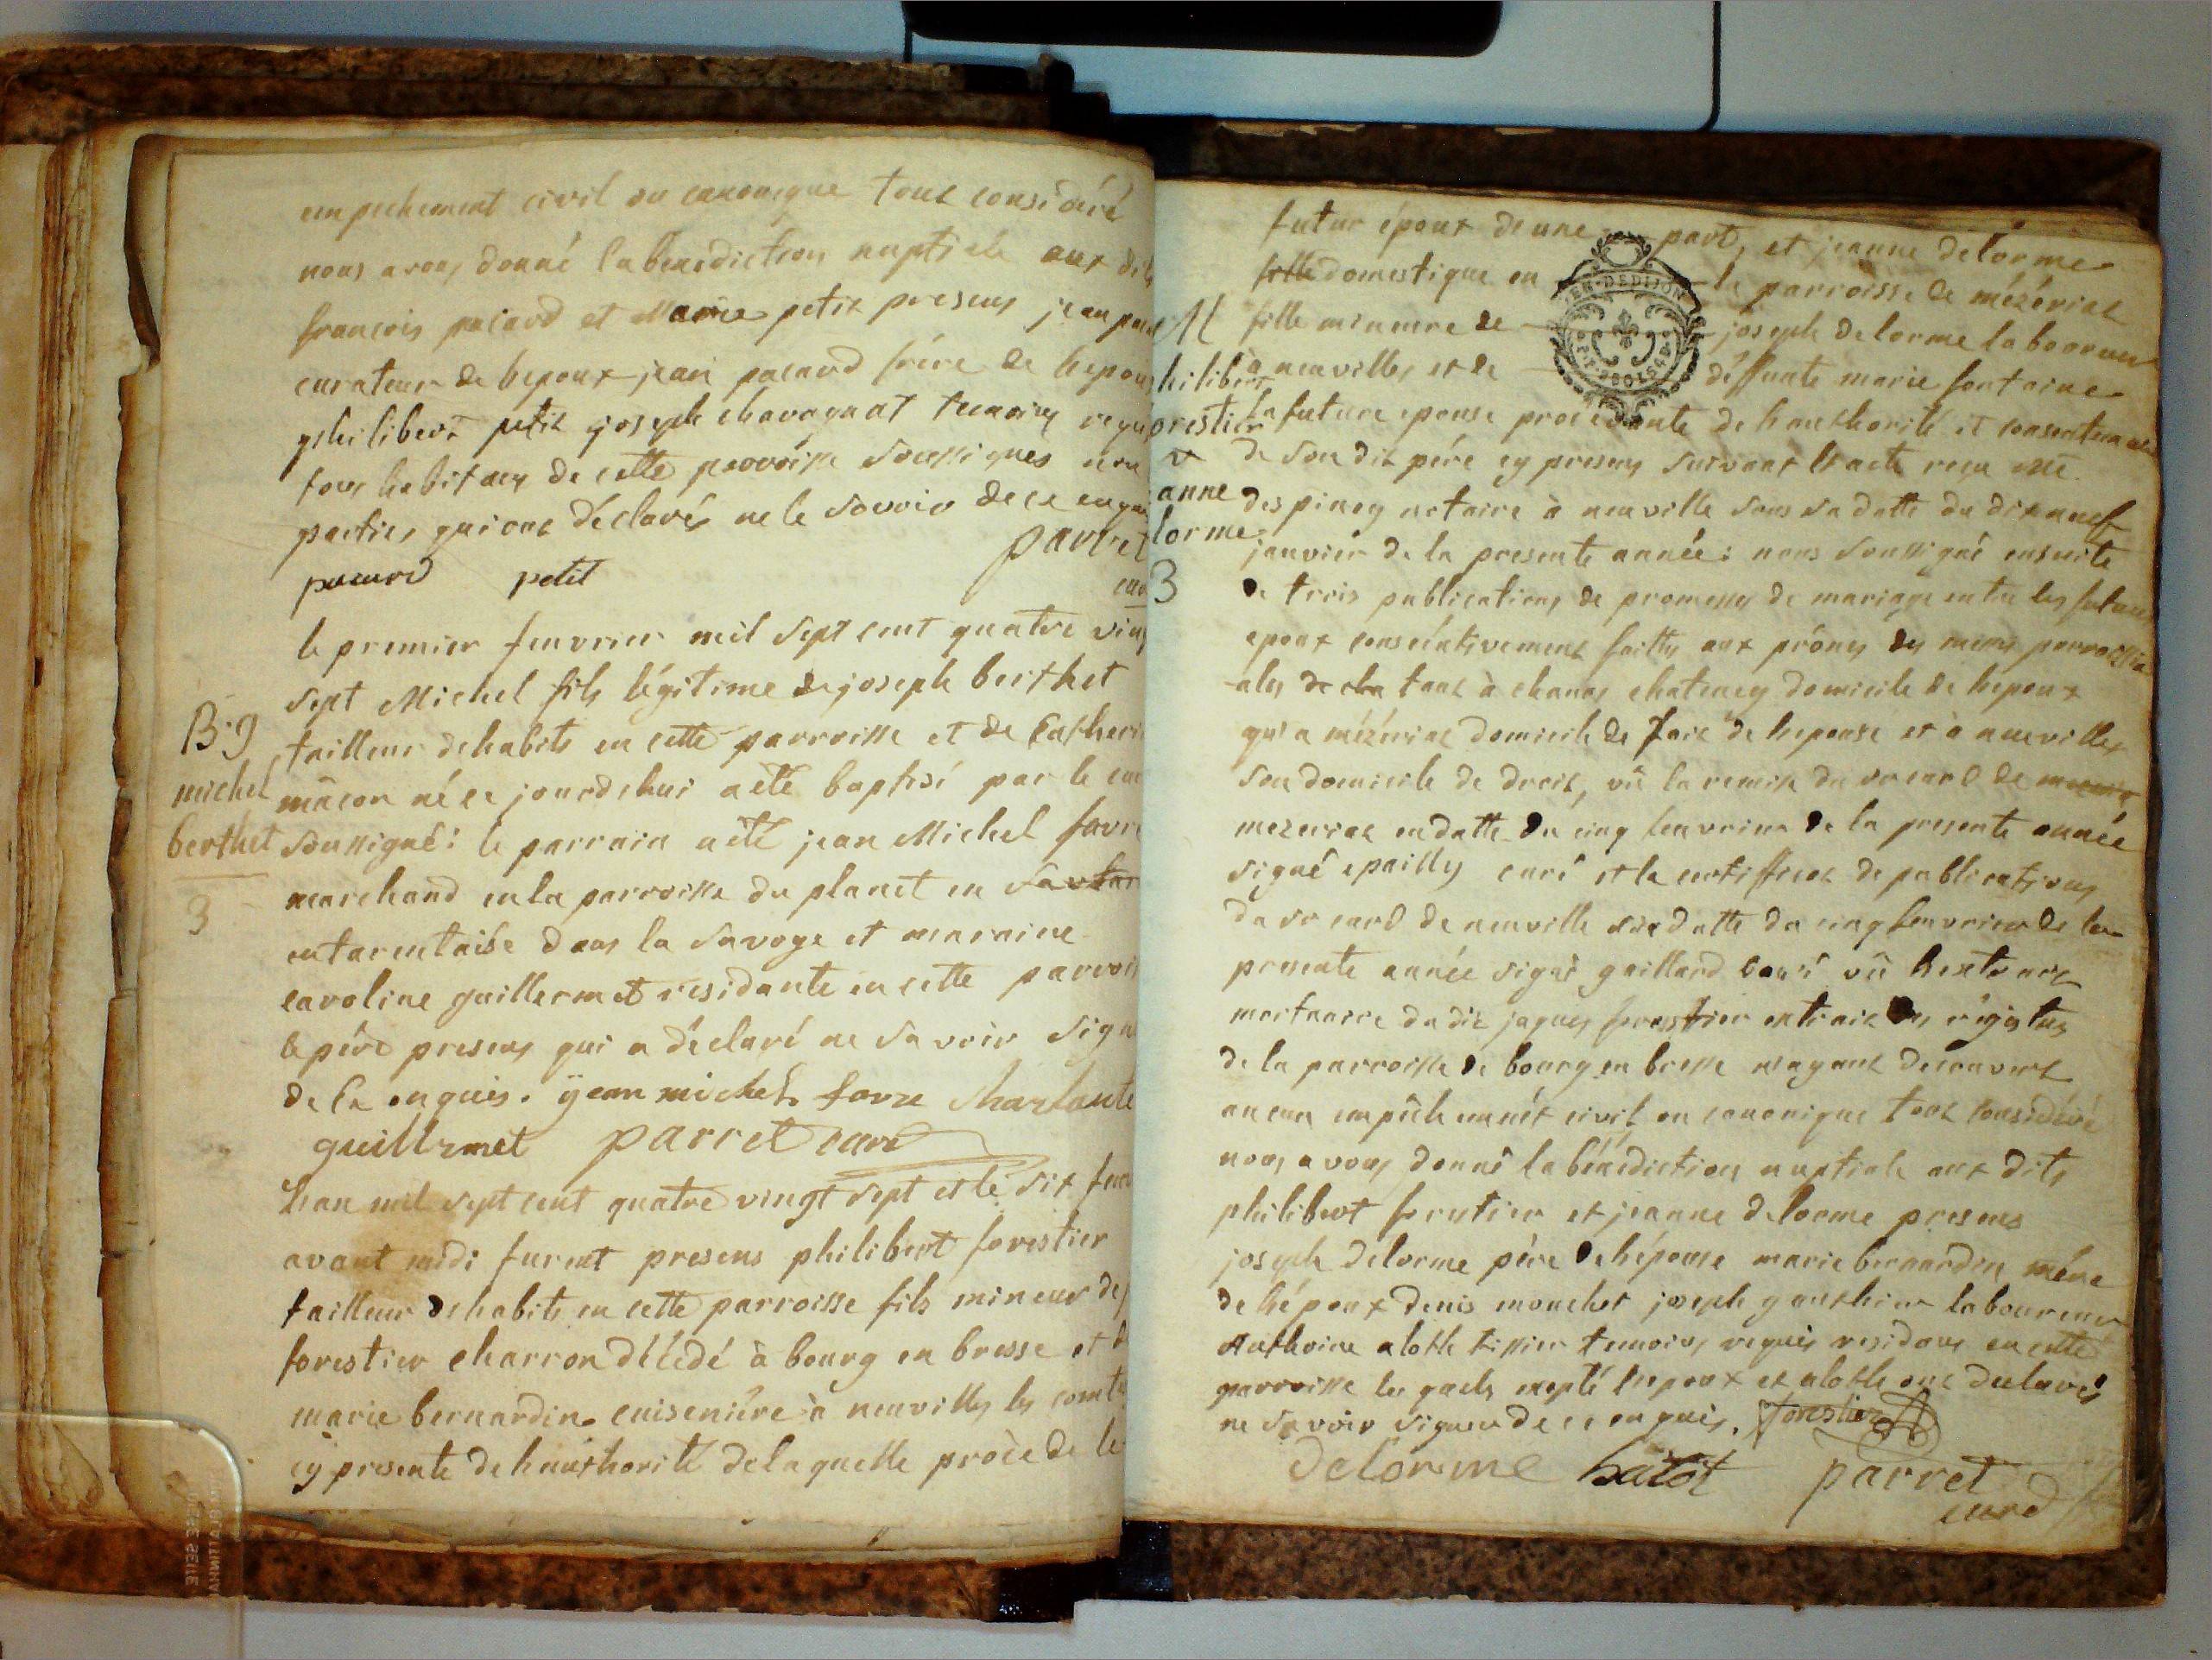 empechement civil ou canonique tout considéré
nous avons donné la bénédiction nuptiale aux dits
francois pacard et Marie petit presens jean
curateur de lepoux jean pacard frère de lepoux
philibert petit joseph chavagnat temoins requis
tous habitans de cette parroisse soussignes non
parties qui ont déclarés ne le savoir de ce enquis
parret
pacard petit
curé
le premier feuvrier mil sept cent quatre vingt
sept Michel fils légitime de joseph berthet
tailleur dehabits en cette parroisse et de Catheri
mâcon né ce jourdehui aété baptisé par le curé
soussigné : le parrain aété jean Michel favre
marchand en la parroisse du planet en
entarentaise dans la savoye et maraine
caroline guillermet residante en cette parroisse
le père presens qui a déclaré ne savoir signer
de ce enquis. jean michel favre charlaute
guillermet parret curé
B.9
michel
berthet
3
Lan mil sept cent quatre vingt sept et le six feuvrier
avant midi furent presens philibert forestier
tailleur dehabits en cette parroisse fils mineur de
forestier charron décédé à bourg en bresse et de
marie bernardin cuiseniére à neuvilles les comtes
cy presente de lauthorité delaquelle procède le
futur époux de une part, et jeanne delorme
fille domestique en la parroisse de mézériat
fille mineure de joseph delorme laboureur
à neuvilles et de déffunte marie fontaine
la future epouse procédante de lauthorité et consentement
de son dit pére cy presens suivant lacte recu me
despiney notaire à neuville sous sa datte du dixneuf
janvier de la presente année : nous soussigné ensuite
de trois publications de promesses de mariage entre les futurs
epoux consécutivement faittes aux prônes des messes parroissi
ales de cha tant à chanos chatenay domicile de lepoux
qu'a mézériat domicile de fait de lepouse et à neuvilles
son domicile de droit, vû la remise du sr curé de
mezeriat endatte du cinq feuvrier de la presente année
signé epailly curé et le certifficat de publications
du sr curé de neuville sous datte du cinq feuvrier de la
presente année signé gaillard curé vû lextrait
mortuaire du dit jaques forestier extrait des régistres
de la parroisse de bourg en bresse nayant decouvert
aucun empêchement civil ou canonique tout considéré
nous avons donné la bénédiction nuptiale aux dits
philibert forestier et jeanne delorme presens
joseph delorme père de lépouse marie bernardin mére
de lépoux denis mouchot joseph gauthier laboureur
authoine aloth tissier temoins requis residans en cette
parroisse les quels excepté lepoux et aloth ont declarés
ne savoir signer de ce enquis. forestier
delorme parret
curé
M
hilibert
orestier
anne
lorme
3
GEN · DE DIJON